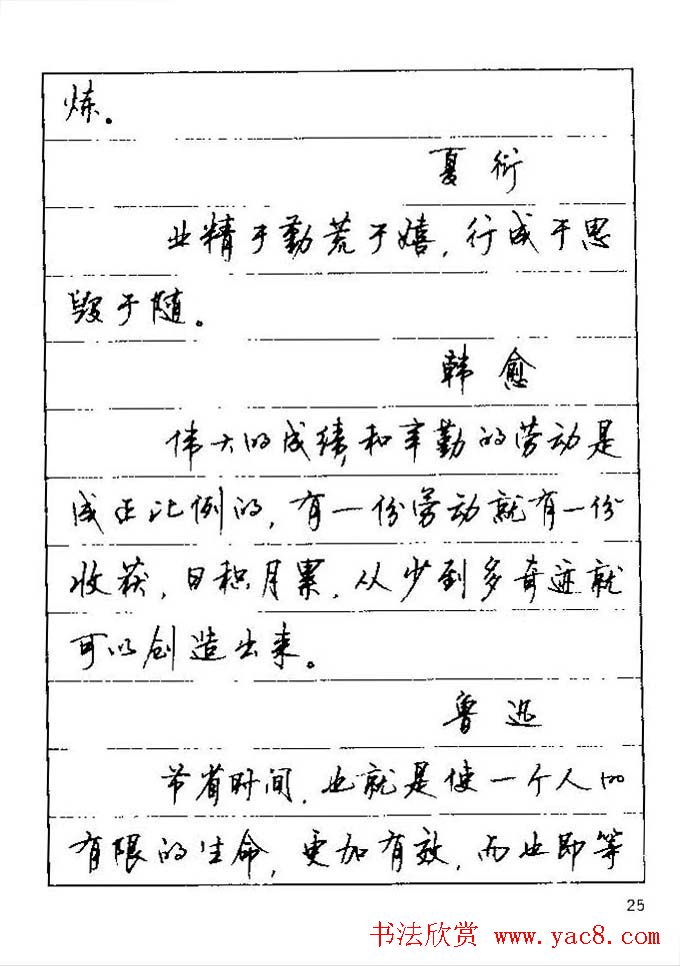 炼。
夏衍
业精于勤荒于嬉，行成于思
毁于随。
韩愈
伟大的成绩，和辛勤的劳动是
成正比例的，有一份劳动就有一份
收获，日积月累，从少到多奇迹就
可以创造出来。
鲁迅
节省时间，也就是使一个人的
有限的生命，更加有效，而也即等
25
书法欣赏 www.yac8.com